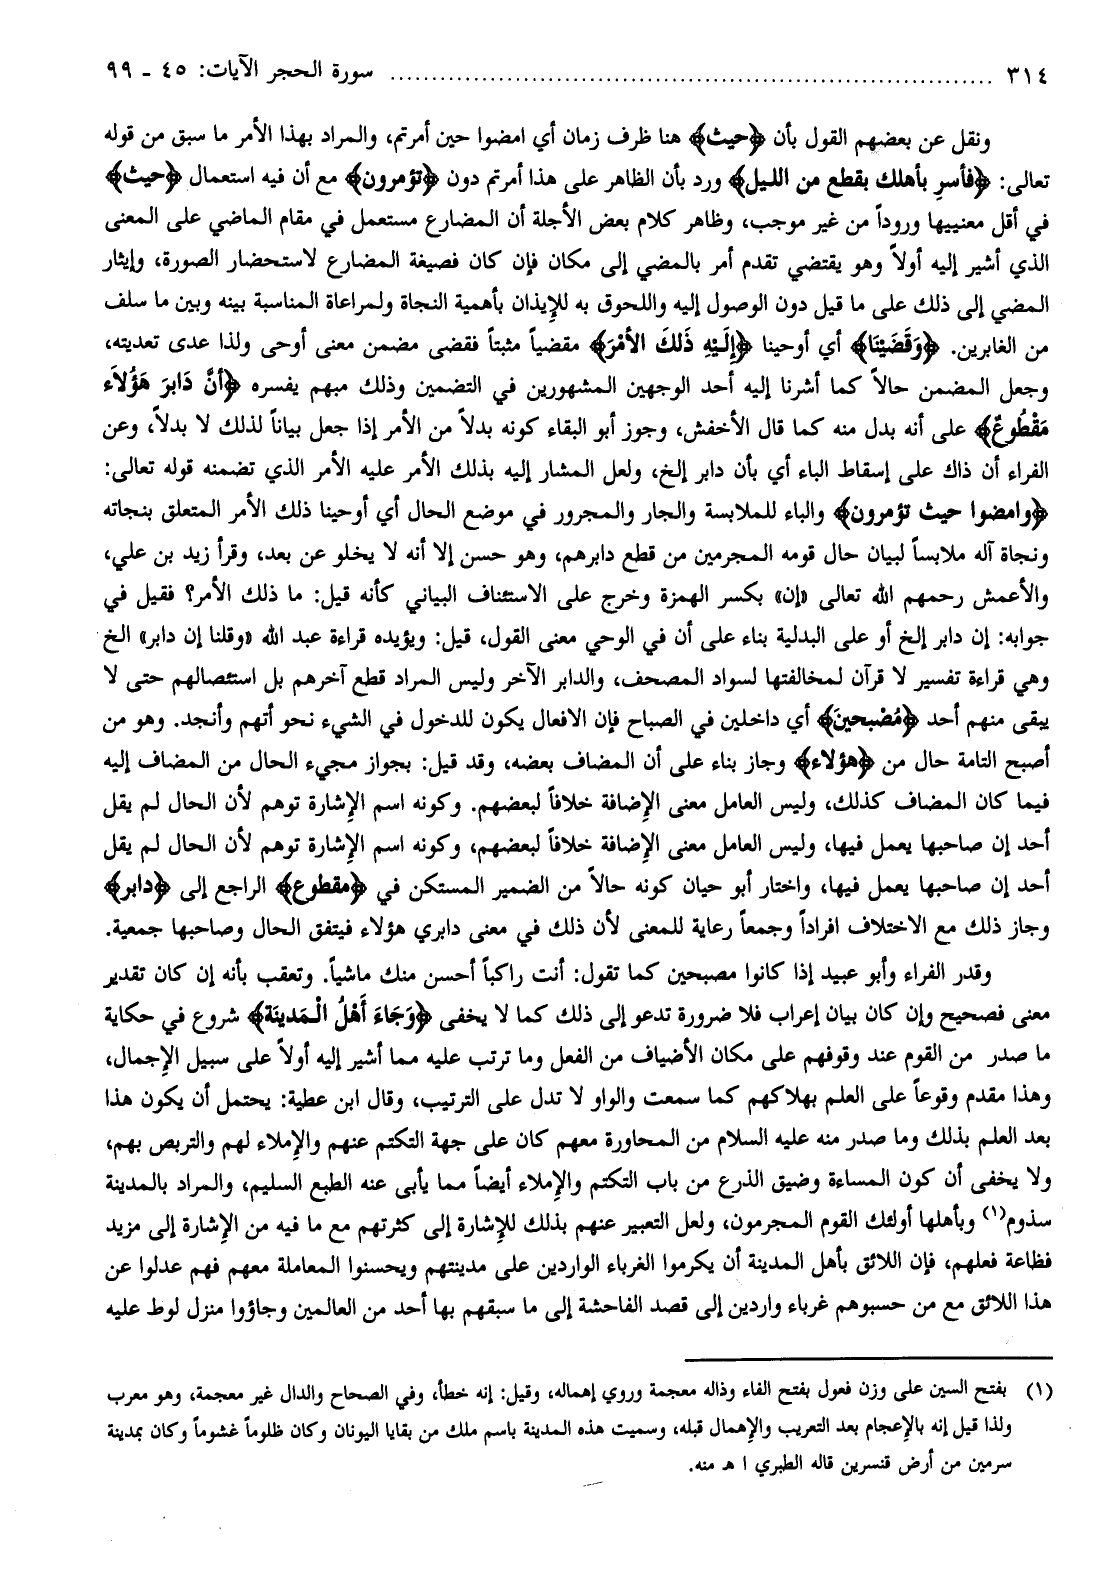 ٣١٤ ........................................ سورة الحجر الآيات: ٤٥ ـ ٩٩
ونقل عن بعضهم القول بأن ﴿حيث﴾ هنا ظرف زمان أي امضوا حين أمرتم، والمراد بهذا الأمر ما سبق من قوله
تعالى: ﴿فأسرِ بأهلك بقطع من الليل﴾ ورد بأن الظاهر على هذا أمرتم دون ﴿تؤمرون﴾ مع أن فيه استعمال ﴿حيث﴾
في أقل معنييها وروداً من غير موجب، وظاهر كلام بعض الأجلة أن المضارع مستعمل في مقام الماضي على المعنى
الذي أشير إليه أولاً وهو يقتضي تقدم أمر بالمضي إلى مكان فإن كان فصيغة المضارع لاستحضار الصورة، وإيثار
المضي إلى ذلك على ما قيل دون الوصول إليه واللحوق به للإيذان بأهمية النجاة ولمراعاة المناسبة بينه وبين ما سلف
من الغابرين. ﴿وَقَضَيْنَا﴾ أي أوحينا ﴿إِلَيْهِ ذَلكَ الأمْرَ﴾ مقضياً مثبتاً فقضى مضمن معنى أوحى ولذا عدى تعديته،
وجعل المضمن حالاً كما أشرنا إليه أحد الوجهين المشهورين في التضمين وذلك مبهم يفسره ﴿أنَّ دَابرَ هَؤُلاَء
مَقْطُوعٌ﴾ على أنه بدل منه كما قال الأخفش، وجوز أبو البقاء كونه بدلاً من الأمر إذا جعل بياناً لذلك لا بدلاً، وعن
الفراء أن ذاك على إسقاط الباء أي بأن دابر إلخ، ولعل المشار إليه بذلك الأمر عليه الأمر الذي تضمنه قوله تعالى:
﴿وامضوا حيث تؤمرون﴾ والباء للملابسة والجار والمجرور في موضع الحال أي أوحينا ذلك الأمر المتعلق بنجاته
ونجاة آله ملابساً لبيان حال قومه المجرمين من قطع دابرهم، وهو حسن إلا أنه لا يخلو عن بعد، وقرأ زيد بن علي،
والأعمش رحمهم الله تعالى «إن» بكسر الهمزة وخرج على الاستئناف البياني كأنه قيل: ما ذلك الأمر؟ فقيل في
جوابه: إن دابر إلخ أو على البدلية بناء على أن في الوحي معنى القول، قيل: ويؤيده قراءة عبد الله «وقلنا إن دابر» الخ
وهي قراءة تفسير لا قرآن لمخالفتها لسواد المصحف، والدابر الآخر وليس المراد قطع آخرهم بل استئصالهم حتى لا
يبقى منهم أحد ﴿مُصْبحينَ﴾ أي داخلين في الصباح فإن الافعال يكون للدخول في الشيء نحو أتهم وأنجد. وهو من
أصبح التامة حال من ﴿هؤلاء﴾ وجاز بناء على أن المضاف بعضه، وقد قيل: بجواز مجيء الحال من المضاف إليه
فيما كان المضاف كذلك، وليس العامل معنى الإضافة خلافاً لبعضهم. وكونه اسم الإشارة توهم لأن الحال لم يقل
أحد إن صاحبها يعمل فيها، وليس العامل معنى الإضافة خلافاً لبعضهم، وكونه اسم الإشارة توهم لأن الحال لم يقل
أحد إن صاحبها يعمل فيها، واختار أبو حيان كونه حالاً من الضمير المستكن في ﴿مقطوع﴾ الراجع إلى ﴿دابر﴾
وجاز ذلك مع الاختلاف افراداً وجمعاً رعاية للمعنى لأن ذلك في معنى دابري هؤلاء فيتفق الحال وصاحبها جمعية.
وقدر الفراء وأبو عبيد إذا كانوا مصبحين كما تقول: أنت راكباً أحسن منك ماشياً. وتعقب بأنه إن كان تقدير
معنى فصحيح وإن كان بيان إعراب فلا ضرورة تدعو إلى ذلك كما لا يخفى ﴿وَجَاءَ أَهْلُ الْمَدينَة﴾ شروع في حكاية
ما صدر من القوم عند وقوفهم على مكان الأضياف من الفعل وما ترتب عليه مما أشير إليه أولاً على سبيل الإجمال،
وهذا مقدم وقوعاً على العلم بهلاكهم كما سمعت والواو لا تدل على الترتيب، وقال ابن عطية: يحتمل أن يكون هذا
بعد العلم بذلك وما صدر منه عليه السلام من المحاورة معهم كان على جهة التكتم عنهم والإملاء لهم والتربص بهم،
ولا يخفى أن كون المساءة وضيق الذرع من باب التكتم والإملاء أيضاً مما يأبى عنه الطبع السليم، والمراد بالمدينة
سذوم(١) وبأهلها أولئك القوم المجرمون، ولعل التعبير عنهم بذلك للإشارة إلى كثرتهم مع ما فيه من الإشارة إلى مزيد
فظاعة فعلهم، فإن اللائق بأهل المدينة أن يكرموا الغرباء الواردين على مدينتهم ويحسنوا المعاملة معهم فهم عدلوا عن
هذا اللائق مع من حسبوهم غرباء واردين إلى قصد الفاحشة إلى ما سبقهم بها أحد من العالمين وجاؤوا منزل لوط عليه
(١) بفتح السين على وزن فعول بفتح الفاء وذاله معجمة وروي إهماله، وقيل: إنه خطأ، وفي الصحاح والدال غير معجمة، وهو معرب
ولذا قيل إنه بالإعجام بعد التعريب والإهمال قبله، وسميت هذه المدينة باسم ملك من بقايا اليونان وكان ظلوماً غشوماً وكان بمدينة
سرمين من أرض قنسرين قاله الطبري ا هـ منه.